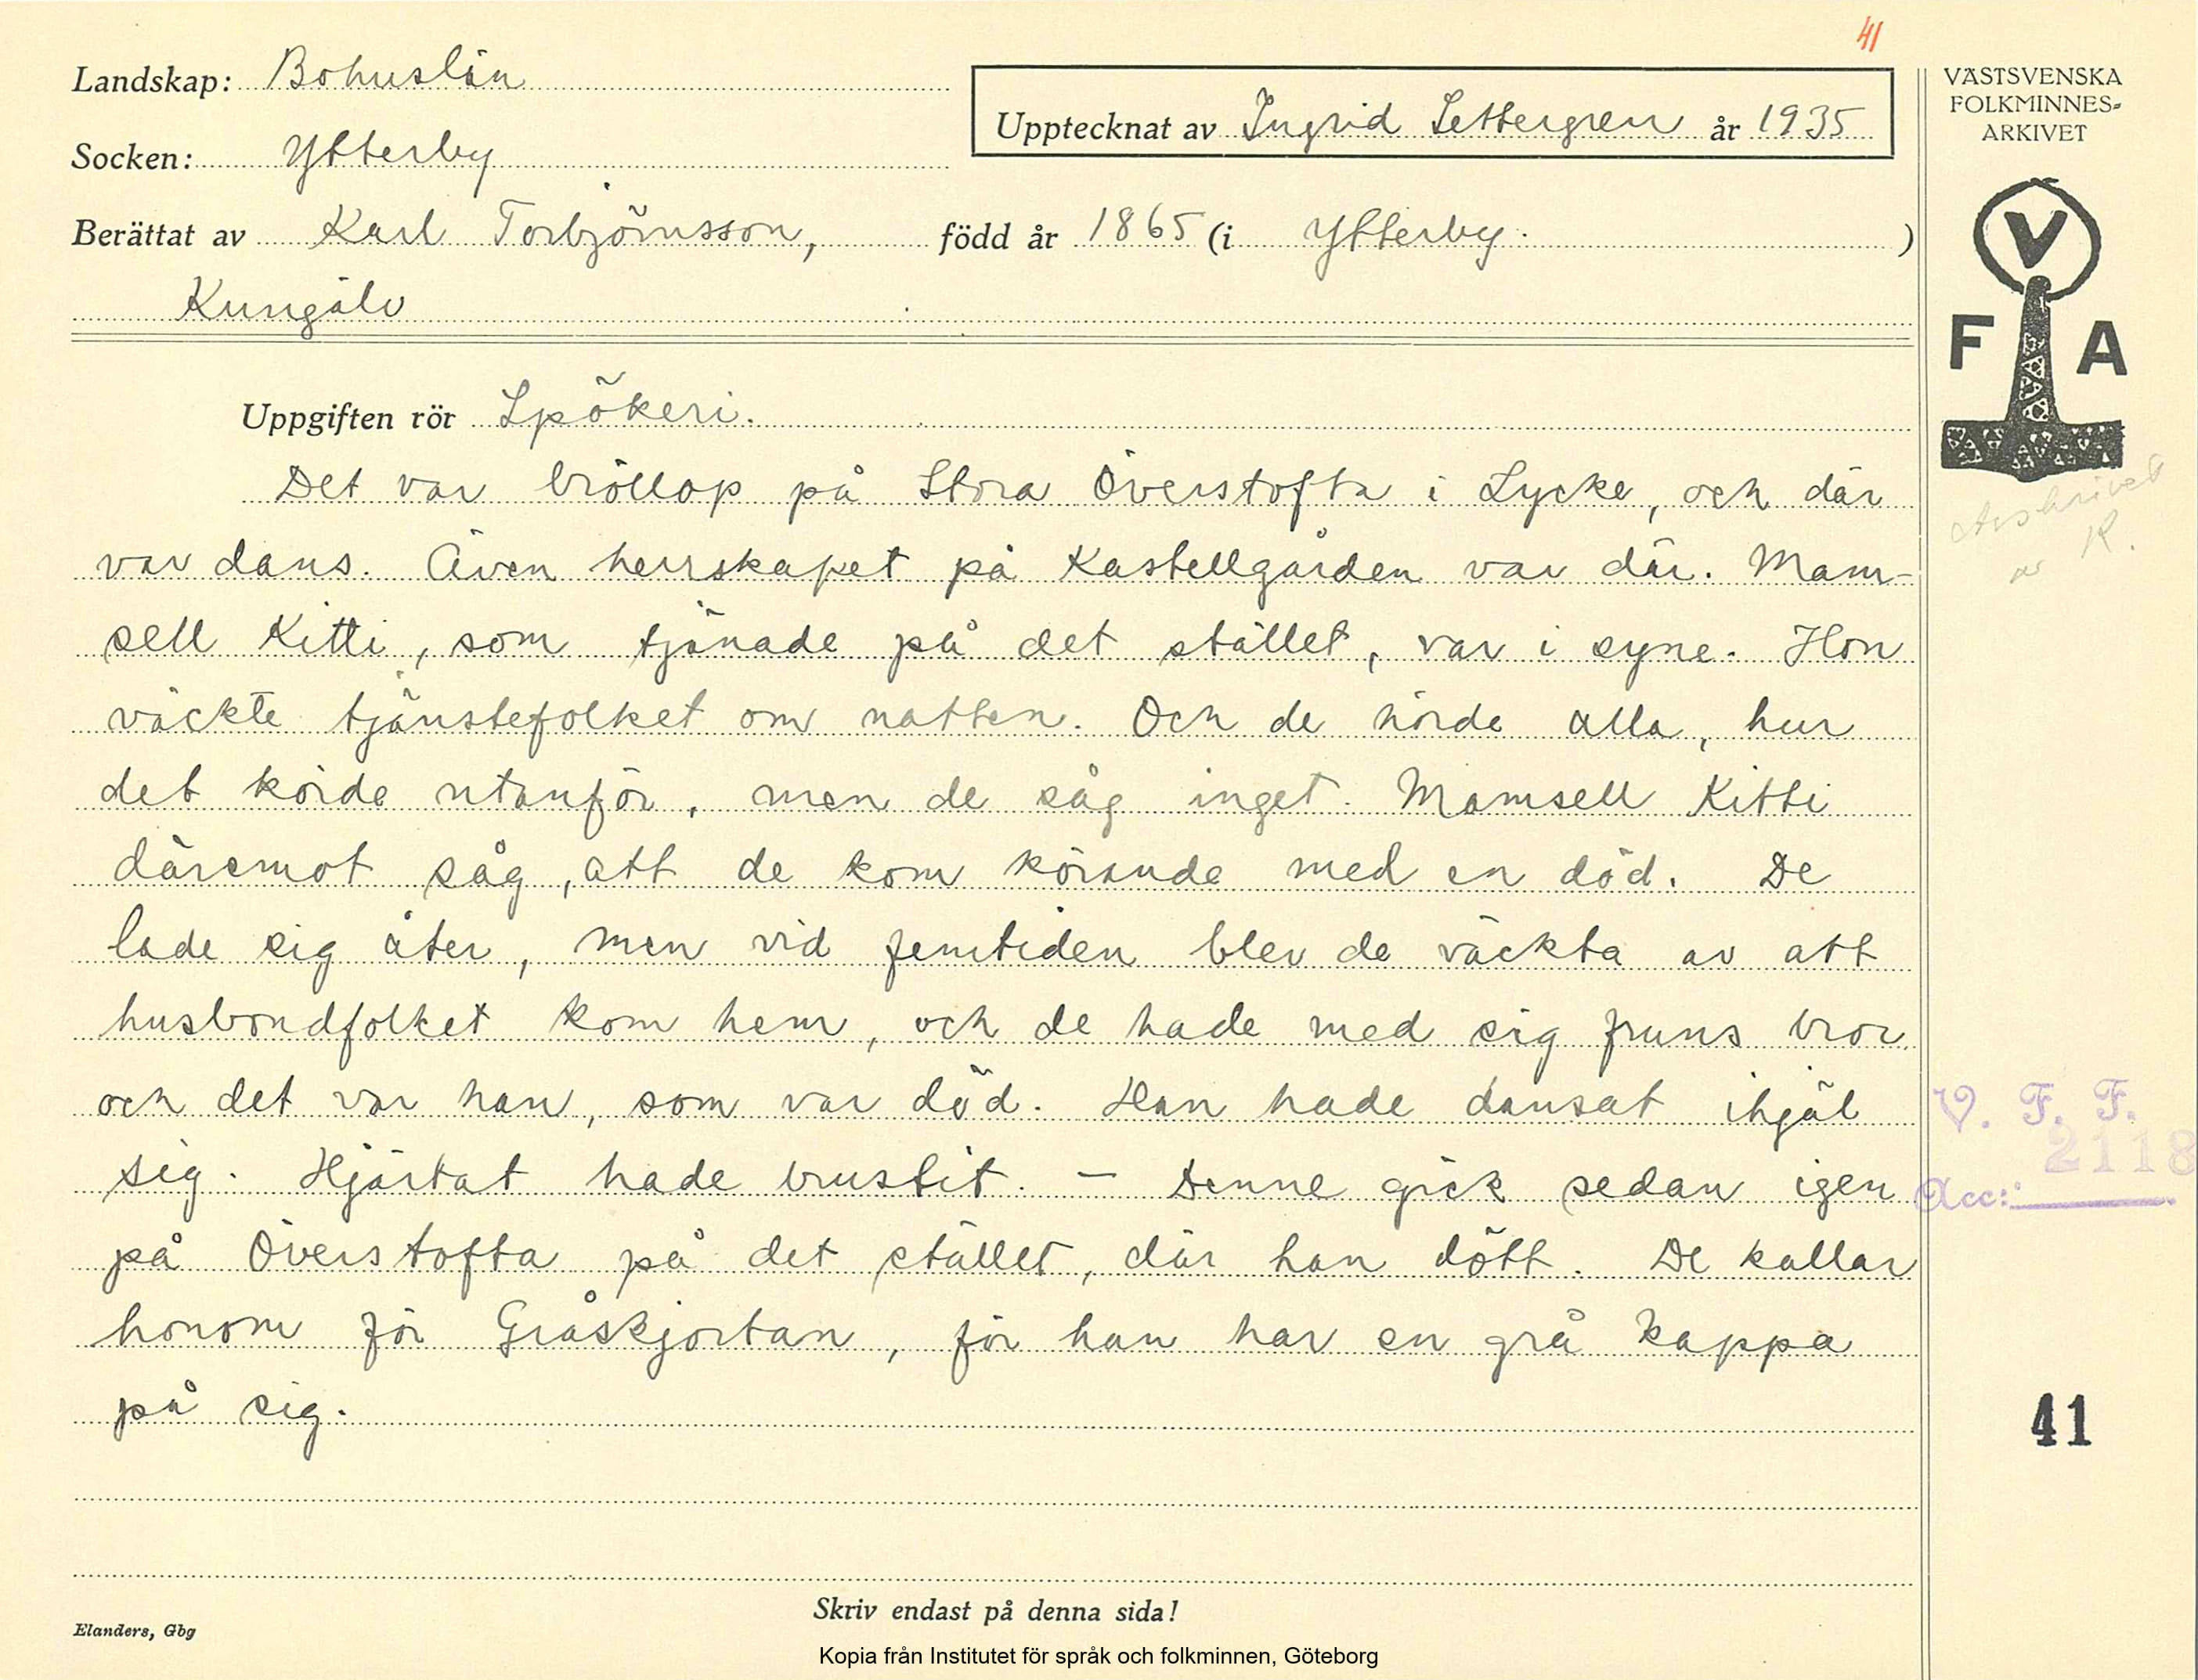 41
Landskap: Bohuslän
Socken: Ytterby
Upptecknat av Ingrid Settergren år 1935
Berättat av Karl Torbjörnsson, född år 1865 (i Ytterby. )
Kungälv
VÄSTSVENSKA
FOLKMINNES-
ARKIVET
V
F A
Uppgiften rör Spökeri.
Det var bröllop på Stora Överstofta i Lycke, och där
var dans. Även herrskapet på Kastellgården var där. Mam-
sell Kitti, som tjänade på det stället, var i syne. Hon
väckte tjänstefolket om natten. Och de hörde alla, hur
det körde utanför, men de såg inget. Mamsell Kitti
däremot såg, att de kom körande med en död. De
lade sig åter, men vid femtiden blev de väckta av att
husbondfolket kom hem, och de hade med sig fruns bror,
och det var han, som var död. Han hade dansat ihjäl
sig. Hjärtat hade brustit. – Denne gick sedan igen
på Överstofta på det stället, där han dött. De kallar
honom för Gråskjortan, för han har en grå kappa
på sig.
Avskrivet
av R.
V. F. F.
2118
Acc:
41
Skriv endast på denna sida!
Elanders, Gbg
Kopia från Institutet för språk och folkminnen, Göteborg